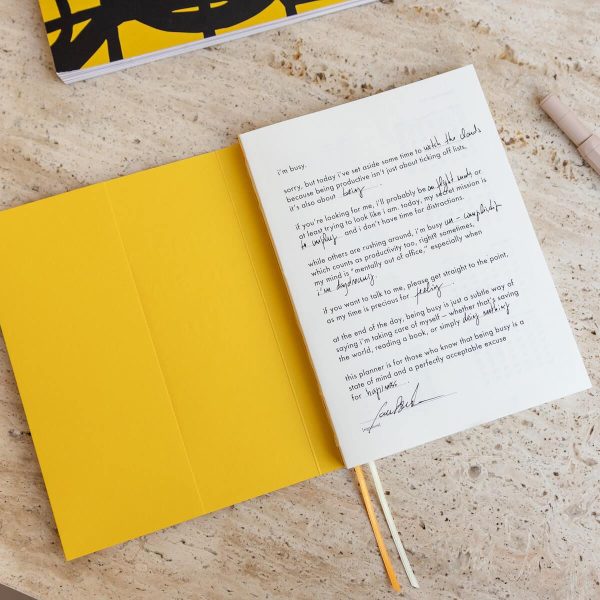 i'm busy.
sorry, but today i've set aside some time to watch the clouds
because being productive isn't just about ticking off lists,
it's also about being...
if you're looking for me, i'll probably be on flight mode or
at least trying to look like i am. today, my secret mission is
to unplug... and i don't have time for distractions.
while others are rushing around, i'm busy un-complicating
which counts as productive too, right? sometimes,
my mind is "mentally out of office," especially when
i'm daydreaming.
if you want to talk to me, please get straight to the point,
as my time is precious for feeling...
at the end of the day, being busy is just a subtle way of
saying i'm taking care of myself – whether that's saving
the world, reading a book, or simply doing nothing
this planner is for those who know that being busy is a
state of mind and a perfectly acceptable excuse
for happiness...